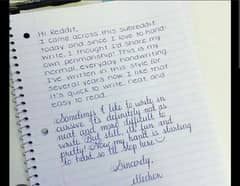 Hi Reddit,
I came across this subreddit
today and since I love to hand-
write, I thought I'd share my
own penmanship! This is my
normal everyday handwriting
I've written in this style for
several years now. I like that
it's quick to write, neat and
easy to read.
Sometimes I like to write in
cursive. It's definitely not as
neat and more difficult to
write. But still, it's fun and
pretty! Now my hand is starting
to hurt, so I'll stop here
Sincerely,